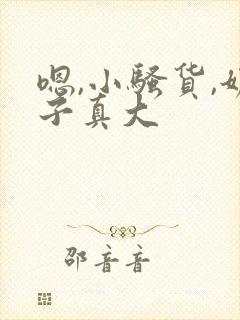 嗯,小骚货,奶
子真大
邵音音